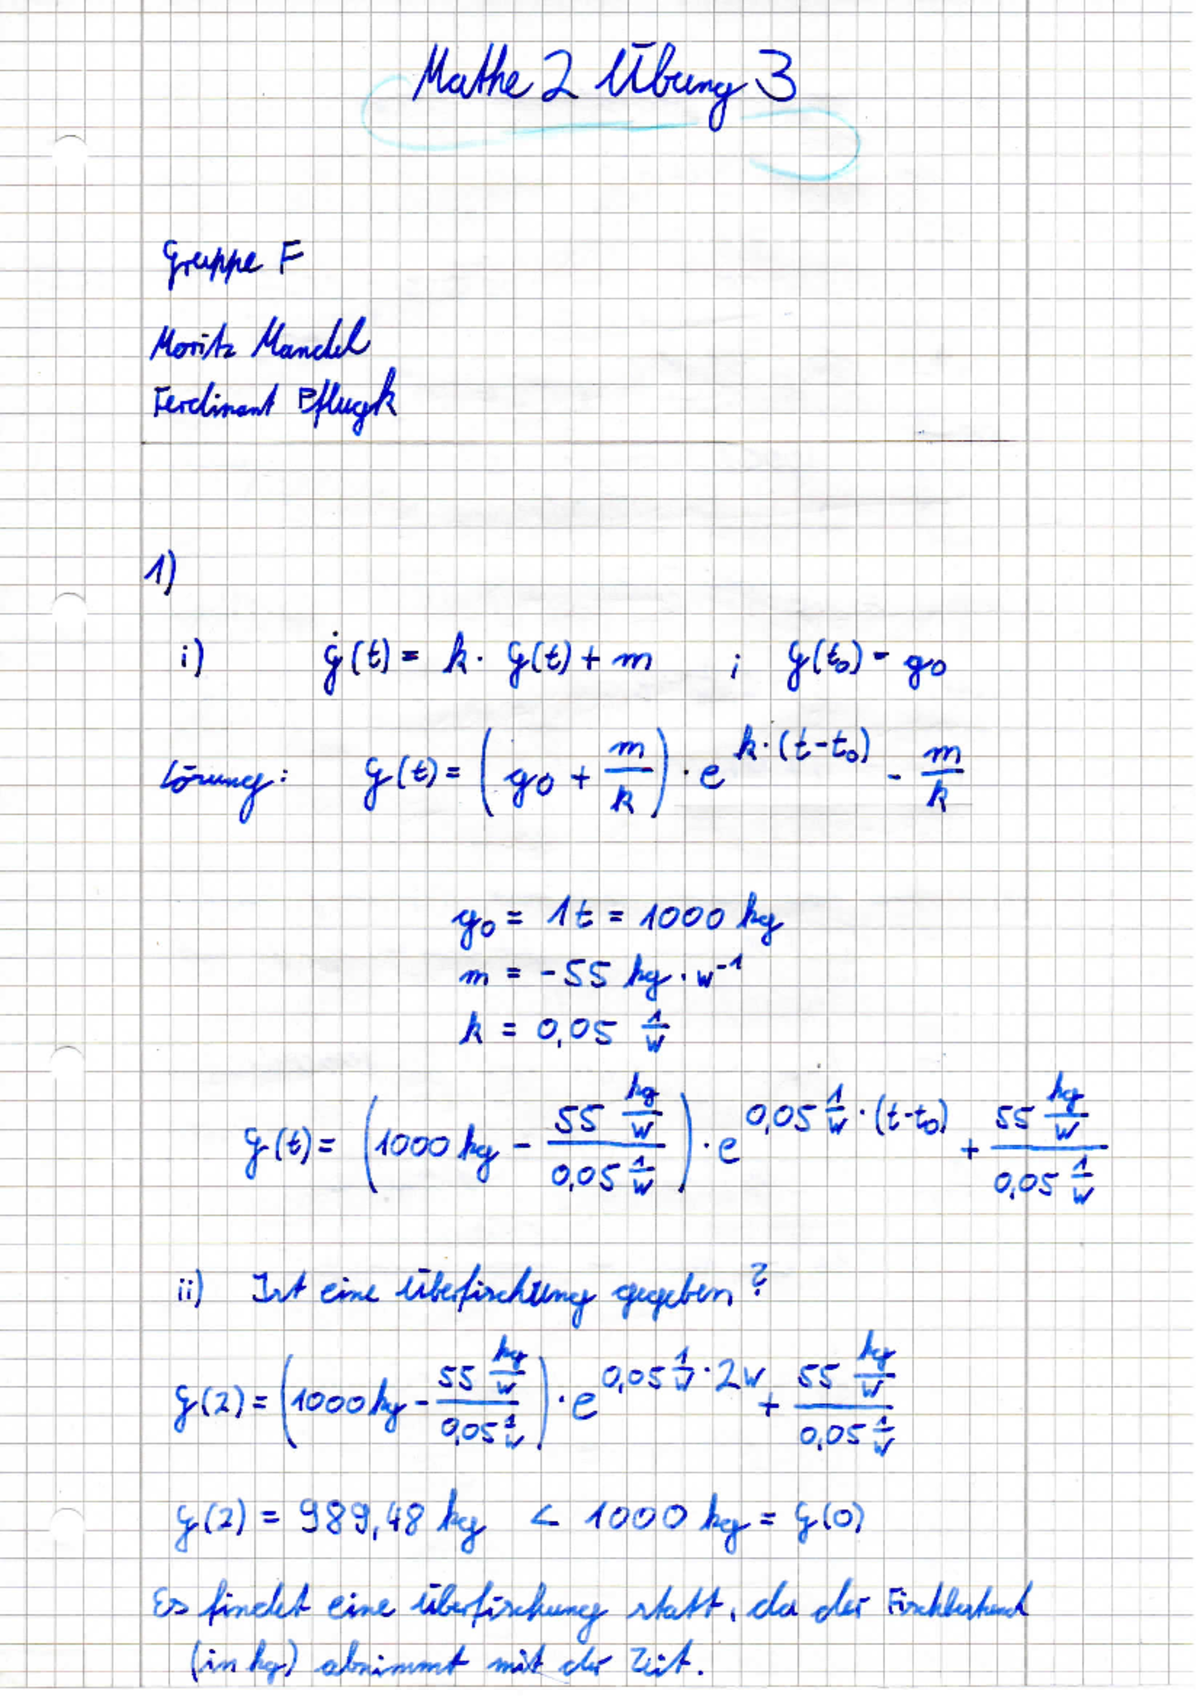 Mathe 2 Übung 3
Gruppe F
Moritz Mandel
Ferdinant Pflugk
1)
i) ġ(t) = k · g(t) + m ; g(t₀) = g₀
Lösung: g(t) = (g₀ + m/k) · e^(k·(t-t₀)) - m/k
g₀ = 1t = 1000 kg
m = -55 kg · w⁻¹
k = 0,05 1/w
g(t) = (1000 kg - (55 kg/w)/(0,05 1/w)) · e^(0,05 1/w · (t-t₀)) + (55 kg/w)/(0,05 1/w)
ii) Ist eine Überfischung gegeben?
g(2) = (1000 kg - (55 kg/w)/(0,05 1/w)) · e^(0,05 1/w · 2w) + (55 kg/w)/(0,05 1/w)
g(2) = 989,48 kg < 1000 kg = g(0)
Es findet eine Überfischung statt, da der Fischbestand
(in kg) abnimmt mit der Zeit.